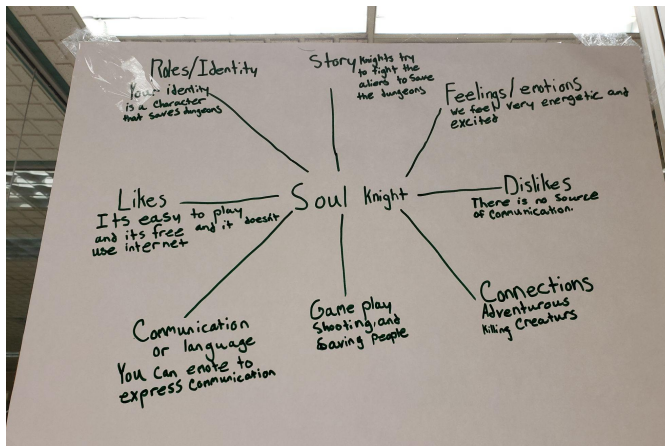 Roles/Identity
Your identity
is a character
that saves dungeons
Story
Knights try
to fight the
aliens to save
the dungeons
Feelings/emotions
we feel very energetic and
excited
Likes
Its easy to play
and its free and it doesn't
use internet
Soul Knight
Dislikes
There is no source
of communication.
Communication
or language
You can emote to
express communication
Game play
Shooting, and
Saving people
Connections
Adventurous
Killing Creaturs